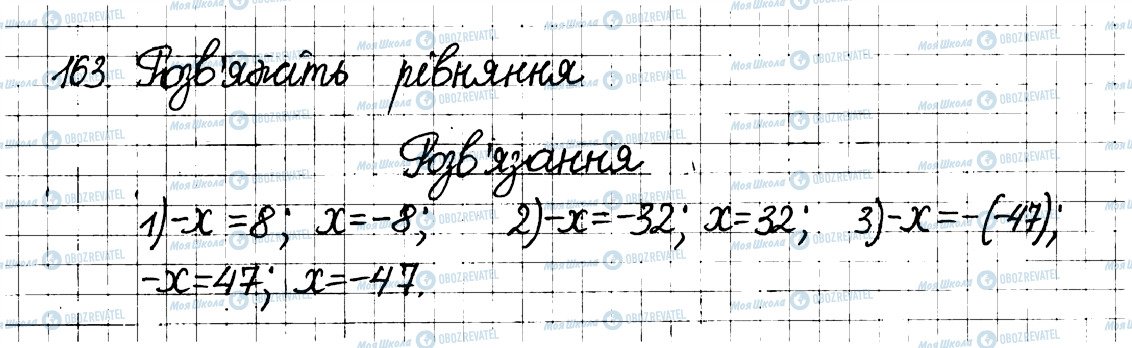 163. Розв'яжіть рівняння.
Розв'язання
1) -x = 8; x = -8; 2) -x = -32; x = 32; 3) -x = -(-47);
-x = 47; x = -47.